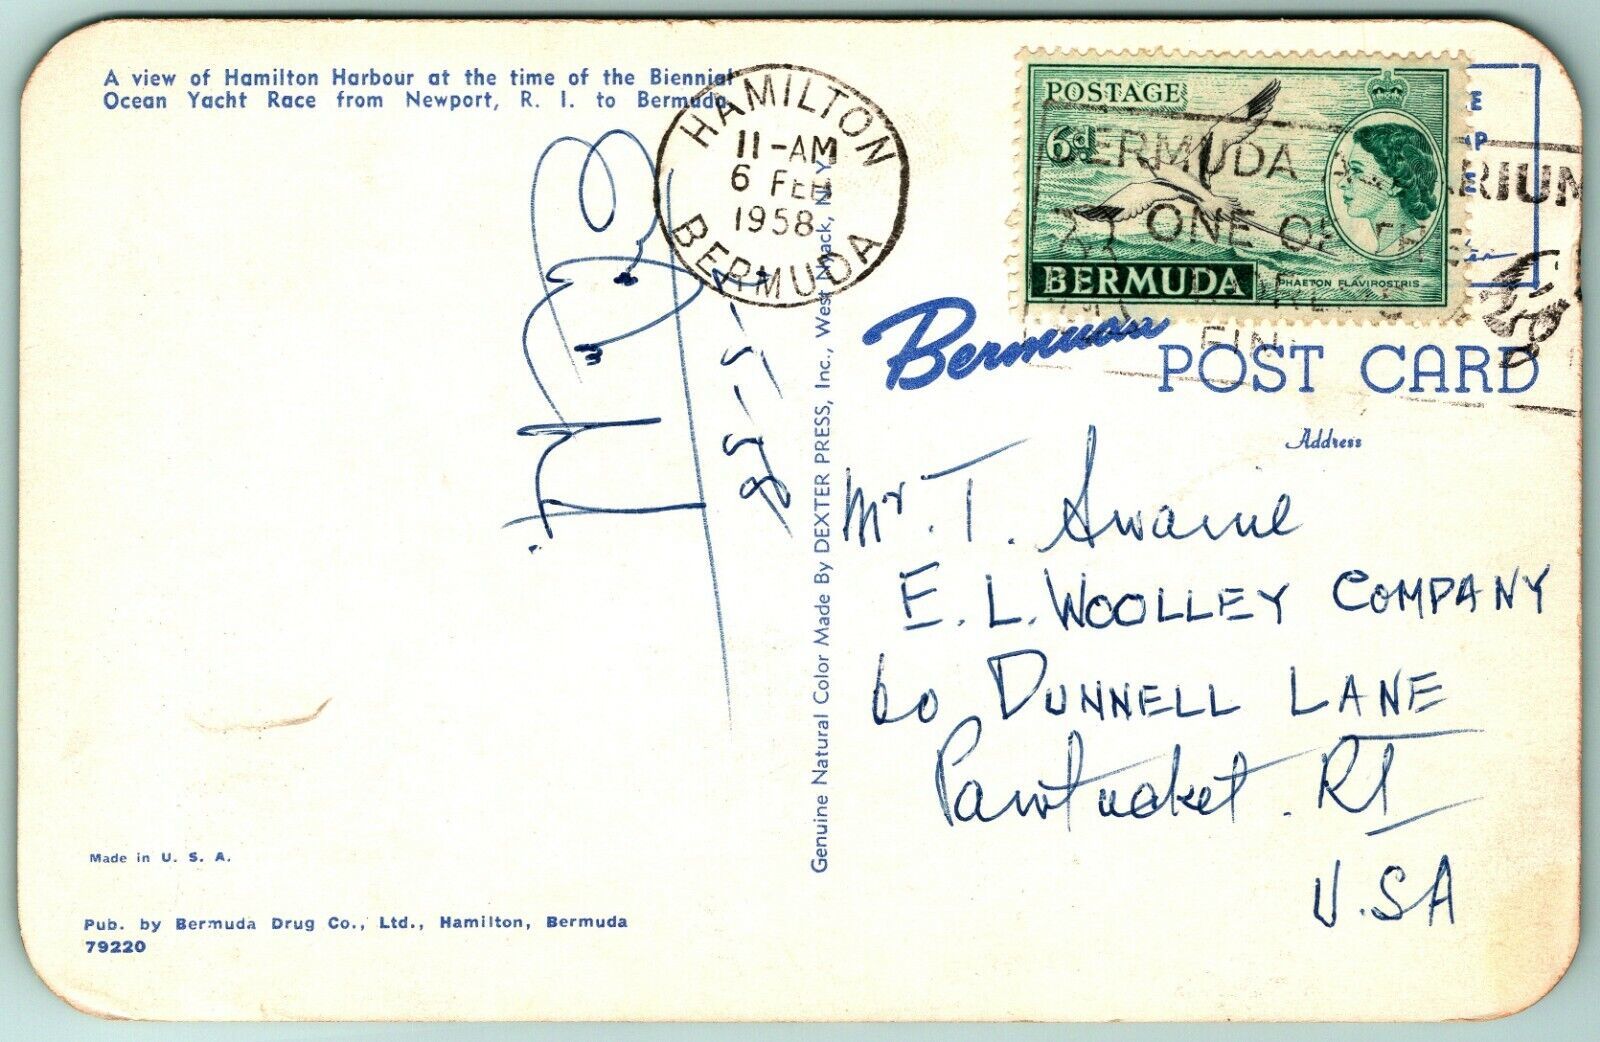 A view of Hamilton Harbour at the time of the Biennial
Ocean Yacht Race from Newport, R. I. to Bermuda.
HAMILTON
11-AM
6 FEB
1958
BERMUDA
POSTAGE
6d
BERMUDA
PHAETON FLAVIROSTRIS
BERMUDA AQUARIUM
ONE OF THE
Bermuda
POST CARD
Address
Mr. T. Swaine
E. L. WOOLLEY COMPANY
60 DUNNELL LANE
Pawtucket. RI
U.SA
Genuine Natural Color Made By DEXTER PRESS, Inc., West Nyack, N.Y.
Made in U. S. A.
Pub. by Bermuda Drug Co., Ltd., Hamilton, Bermuda
79220